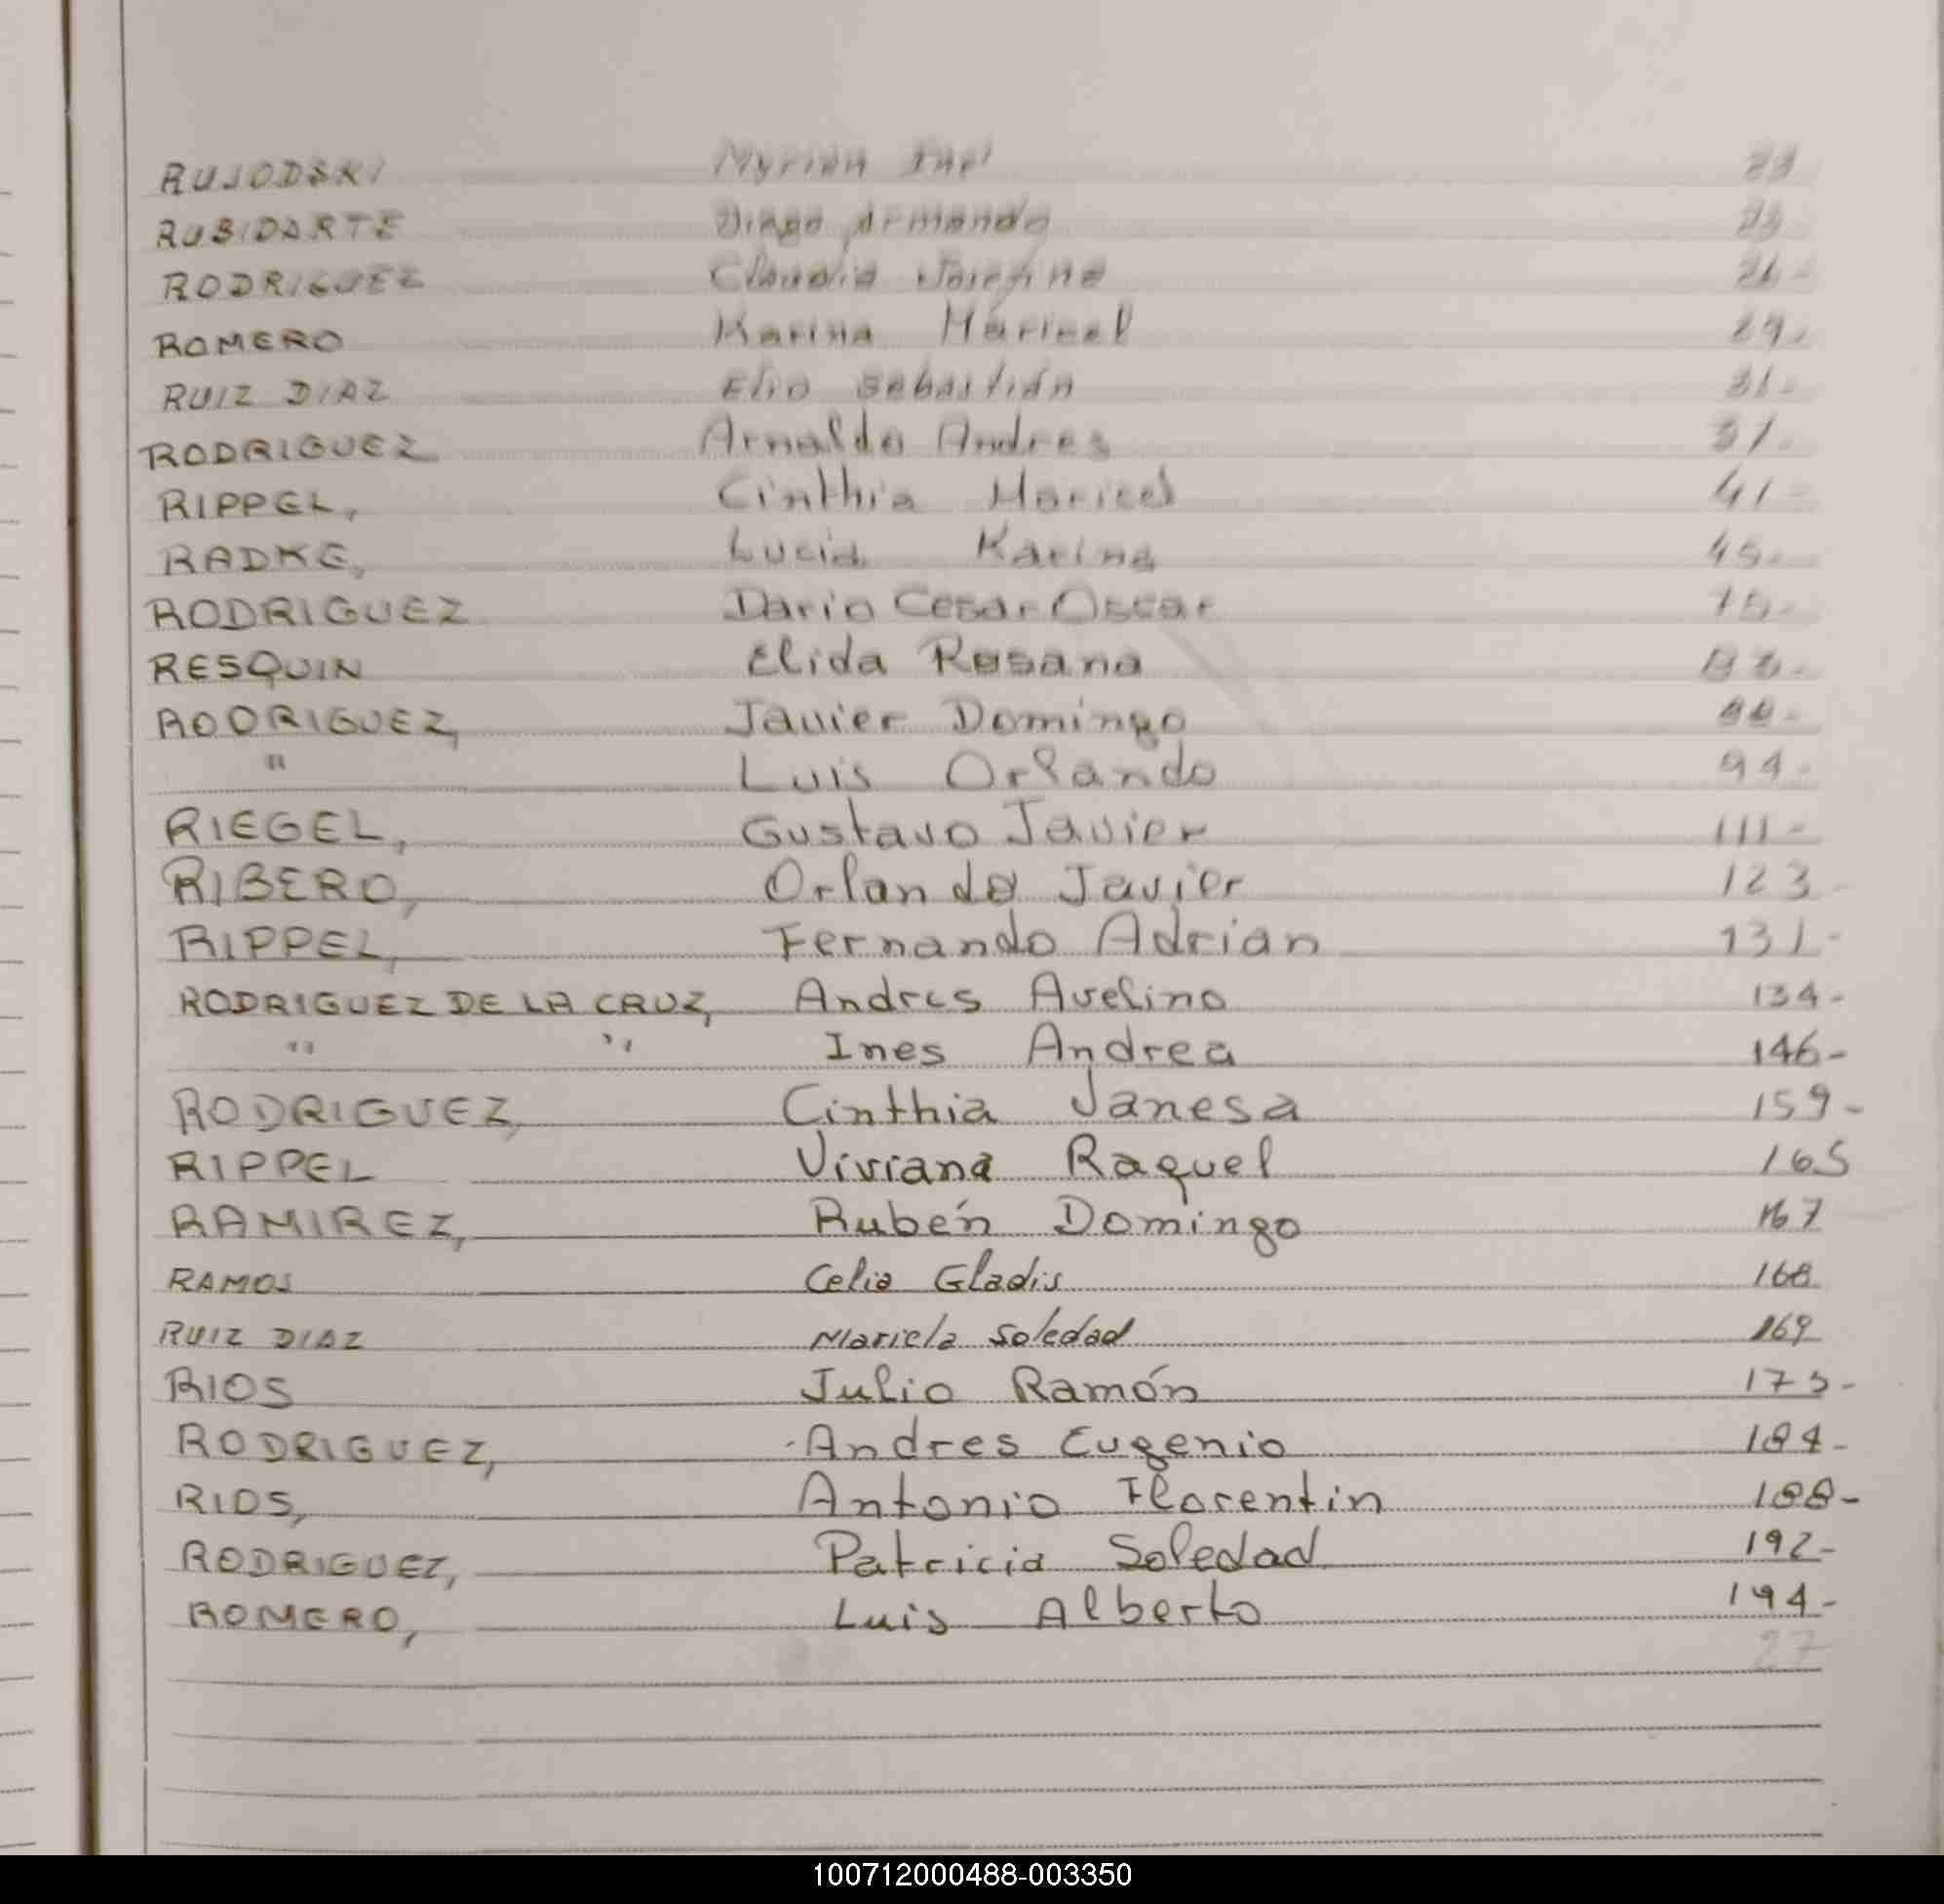 RUBIDARTE Diego Armando
RODRIGUEZ Claudia Josefina 26-
ROMERO Karina Maricel 29-
RUIZ DIAZ Elio Sebastián 31-
RODRIGUEZ Arnaldo Andres 37-
RIPPEL, Cinthia Maricel 41-
RADKE, Lucia Karina 45-
RODRIGUEZ Dario Cesar Oscar
RESQUIN Elida Rosana
RODRIGUEZ, Javier Domingo
" Luis Orlando 94-
RIEGEL, Gustavo Javier 111-
RIBERO, Orlando Javier 123-
RIPPEL, Fernando Adrian 131-
RODRIGUEZ DE LA CRUZ, Andres Avelino 134-
" " Ines Andrea 146-
RODRIGUEZ, Cinthia Vanesa 159-
RIPPEL Viviana Raquel 165
RAMIREZ, Rubén Domingo 167
RAMOS Celia Gladis 168
RUIZ DIAZ Mariela Soledad 169
RIOS Julio Ramón 175-
RODRIGUEZ, Andres Eugenio 184-
RIOS, Antonio Florentin 188-
RODRIGUEZ, Patricia Soledad 192-
ROMERO, Luis Alberto 194-
27
100712000488-003350